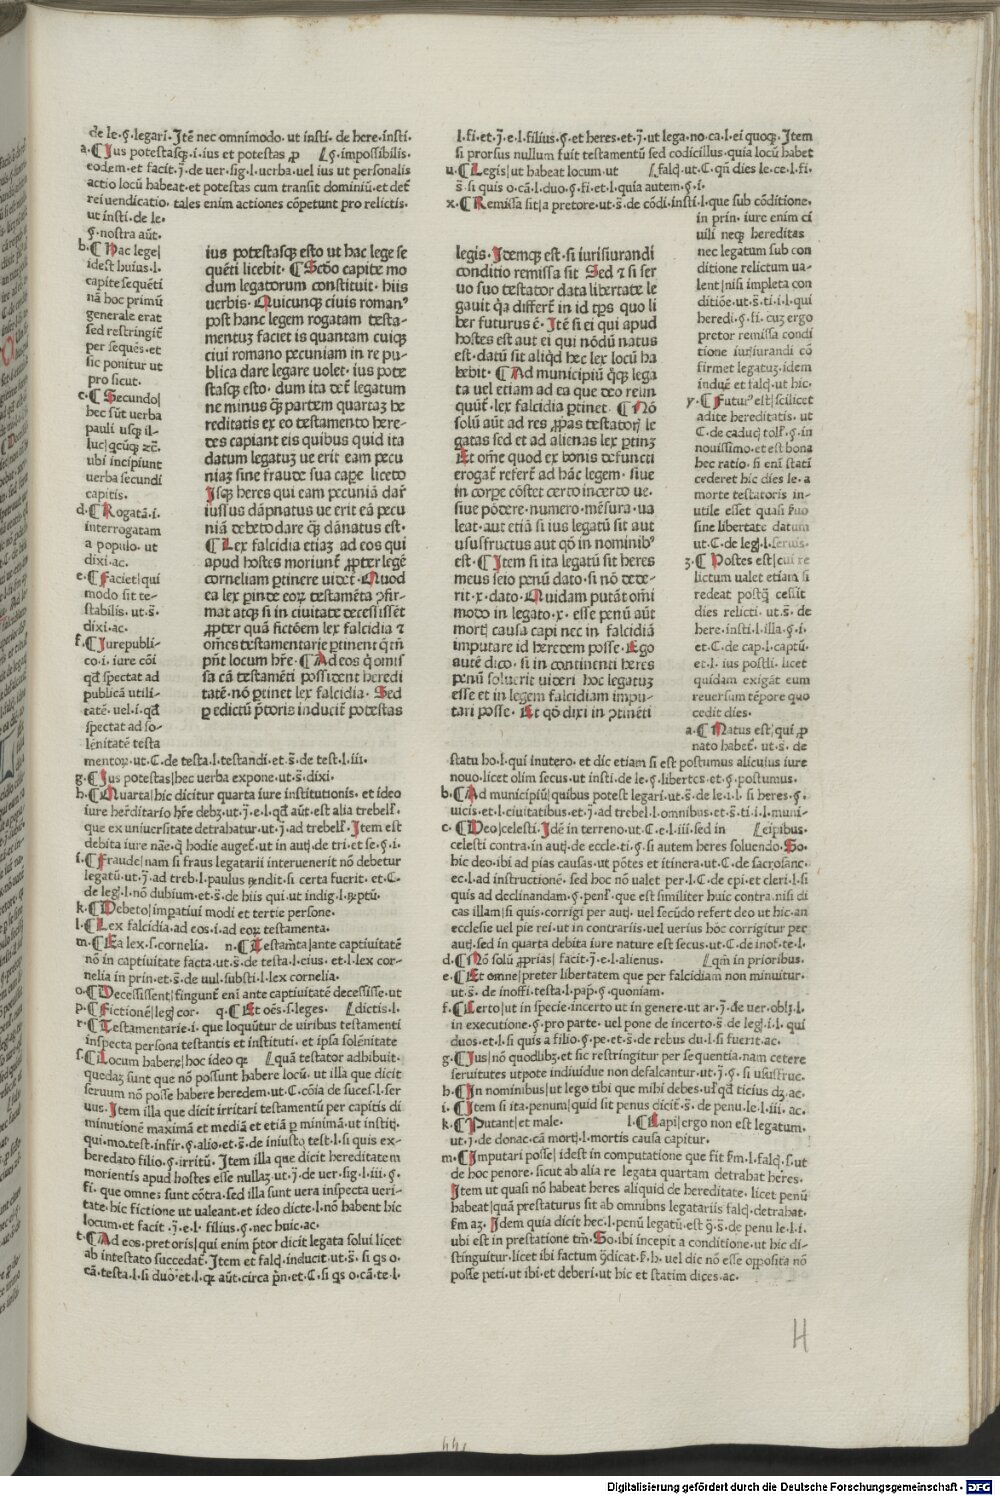 de le·§·legari·Itẽ nec omnimodo·ut insti·de here·insti·
a·¶Ius potestasqꝫ·i·ius et potestas ꝓ §·impossibilis·
eodem·et facit·ī·de uer·sig·l·uerba·uel ius ut personalis
actio locū habeat·et potestas cum transit dominiū·et det̃
rei uendicatio·tales enim actiones cōpetunt pro relictis·
ut insti·de le·
§·nostra aūt·
b·¶Hac lege|
idest huius·l·
capite sequēti
nā hoc primū
generale erat
sed restringit̃
per sequēs·et
sic ponitur ut
pro sicut·
c·¶Secundo|
hec sūt uerba
pauli usqꝫ il-
luc|qcūqꝫ ꝛc̃·
ubi incipiunt
uerba secundi
capitis·
d·¶Rogatā·i·
interrogatam
a populo·ut
dixi·ac·
e·¶Faciet|qui
modo sit te-
stabilis·ut·s̃·
dixi·ac·
f·¶Iurepubli-
co·i·iure cōi
qđ spectat ad
publicā utili-
tatē·uel·i·qđ
spectat ad so-
lēnitatē testa
ius potestasqꝫ esto ut hac lege se
quēti licebit·¶Scđo capite mo
dum legatorum constituit·hiis
uerbis·Quicunqꝫ ciuis romanꝰ
post hanc legem rogatam testa-
mentuꝫ faciet is quantam cuiqꝫ
ciui romano pecuniam in re pu-
blica dare legare uolet·ius pote
stasqꝫ esto·dum ita det̃ legatum
ne minus qꝫ̃ partem quartaꝫ he
reditatis ex eo testamento here-
des capiant eis quibus quid ita
datum legatuꝫ ue erit eam pecu
niaꝫ sine fraude sua cape liceto
Isqꝫ heres qui eam pecuniā dar̃
iussus dāpnatus ue erit eā pecu
niā debeto dare qꝫ̃ dānatus est·
¶Lex falcidia etiaꝫ ad eos qui
apud hostes moriunt̃ ꝓpter legē
corneliam ꝑtinere uidet̃·Quod
ea lex ꝑinde eoꝝ testamēta ꝯfir-
mat atqꝫ si in ciuitate decessissēt
ꝓpter quā fictōem lex falcidia ⁊
om̃es testamentarie ꝑtinent q̃ tm̃
pn̄t locum hr̃e·¶Ad eos q̃ omis
sa cā testamēti possident heredi
tatē·nō ꝑtinet lex falcidia·Sed
ꝑ edictū p̃toris inducit̃ potestas
mentoꝝ·ut·C·de testa·l·testandi·et·s̃·de test·l·iii·
g·¶Ius potestas|hec uerba expone·ut·s̃·dixi·
h·¶Quarta|hic dicitur quarta iure institutionis·et ideo
iure her̃ditario hr̃e debꝫ·ut·ī·e·l·qđ aūt·est alia trebell̃·
que ex uniuersitate detrahatur·ut·ī·ad trebell̃·Item est
debita iure nāe·q̃ hodie auget̃·ut in autꝫ·de tri·et se·§·i·
i·¶Fraude|nam si fraus legatarii interuenerit nō debetur
legatū·ut·ī·ad treb·l·paulus rn̄dit·si certa fuerit·et·C·
de legꝫ·l·nō dubium·et·s̃·de hiis qui ut indig·l·reptū·
k·¶Debeto|impatiui modi et tertie persone·
l·¶Lex falcidia·ad eos·i·ad eoꝝ testamenta·
m·¶Ea lex·s·cornelia· n·¶Testam̃ta|ante captiuitatē
nō in captiuitate facta·ut·s̃·de testa·l·eius·et·l·lex cor-
nelia in prin·et·s̃·de uul·substi·l·lex cornelia·
o·¶Decessissent|fingunt̃ eni ante captiuitatē decessisse·ut
p·¶Fictionē|legꝫ cor· q·¶Et oēs·s·leges· dictis·l·
r·¶Testamentarie·i·que loquūtur de uiribus testamenti
inspecta persona testantis et instituti·et ipsa solēnitate
s·¶Locum habere|hoc ideo qꝛ quā testator adhibuit·
quedaꝫ sunt que nō possunt habere locū·ut illa que dicit
seruum nō posse habere heredem·ut·C·cōia de succes·l·ser
uus·Item illa que dicit irritari testamentū per capitis di
minutionē maximā et mediā et etiā ꝑ minimā·ut institꝫ·
qui·mo·test·infir·§·alio·et·s̃·de iniusto test·l·si quis ex-
heredato filio·§·irritū·Item illa que dicit hereditatem
morientis apud hostes esse nullaꝫ·ut·ī·de uer·sig·l·iii·§·
fi·que omnes sunt cōtra·sed illa sunt uera inspecta ueri-
tate·hic fictione ut ualeant·et ideo dicte·l·nō habent hic
locum·et facit·ī·e·l·filius·§·nec huic·ac·
t·¶Ad eos·pretoris|qui enim p̃tor dicit legata solui licet
ab intestato succedat̃·Item et falcꝫ·inducit·ut·s̃·si qs o·
cā·testa·l·si duo·et·l·qꝛ aūt·circa pn̄·et·C·si qs o·cā·te·l·
l·fi·et·ī·e·l·filius·§·et heres·et·ī·ut lega·no·ca·l·ei quoqꝫ·Item
si prorsus nullum fuit testamentū sed codicillus·quia locū habet
u·¶Legis|ut habeat locum·ut falcꝫ·ut·C·qn̄ dies le·ce·l·fi·
s̃·si quis o·cā·l·duo·§·fi·et·l·quia autem·§·i·
x·¶Remissa sit|a pretore·ut·s̃·de cōdi·insti·l·que sub cōditione·
in prin·iure enim ci
uili neqꝫ hereditas
nec legatum sub con
ditione relictum ua-
lent|nisi impleta con
ditiōe·ut·s̃·ti·i·l·qui
heredi·§·fi·cuꝫ ergo
pretor remissa condi
tione iurisiurandi cō
firmet legatuꝫ·idem
induxit et falcꝫ·ut hic·
y·¶Futurꝰ est|scilicet
adite hereditatis·ut
C·de caducꝫ toll̃·§·in
nouissimo·et est bona
hec ratio·si eni statī
cederet hic dies le·a
morte testatoris in-
utile esset quasi s̃uo
sine libertate datum
ut·C·de legꝫ·l·seruis·
z·¶Hostes est|cui re
lictum ualet etiam si
redeat postqꝫ̃ cessit
dies relicti·ut·s̃·de
here·insti·l·illa·§·i·
et·C·de cap·l·captū·
et·l·ius postli·licet
quidam exigāt eum
reuersum tēpore quo
cedit dies·
a·¶Natus est|qui ꝓ
nato habet̃·ut·s̃·de
legis·Idemqꝫ est·si iurisiurandi
conditio remissa sit Sed ⁊ si ser
uo suo testator data libertate le
gauit q̃a differēt in id tp̃s quo li
ber futurus ē·Itē si ei qui apud
hostes est aut ei qui nōdū natus
est·datū sit aliqđ hec lex locū ha
bebit·¶Ad municipiū qꝫqꝫ lega
ta uel etiam ad ea que deo relin
quūt̃·lex falcidia ꝑtinet·¶Nō
solū aūt ad res ꝓprias testatorꝫ le
gatas sed et ad alienas lex ꝑtinꝫ
Et om̃e quod ex bonis defuncti
erogat̃ refert̃ ad hāc legem·siue
in corpe cōstet certo incerto ue·
siue pōdere·numero·mēsura·ua
leat·aut etiā si ius legatū sit aut
ususfructus aut qđ in nominibꝰ
est·¶Item si ita legatū sit heres
meus seio penū dato·si nō dede-
rit·x·dato·Quidam putāt om̃i
modo in legato·x·esse penū aūt
mortꝫ causa capi nec in falcidiā
imputare id heredem posse·Ego
autē dico·si in continenti heres
penū soluerit uideri hoc legatuꝫ
esse et in legem falcidiam impu-
tari posse·Et qđ dixi in ꝯtinēti
statu ho·l·qui inutero·et dic etiam si est postumus alicuius iure
nouo·licet olim secus·ut insti·de le·§·libertos·et·§·postumus·
b·¶Ad municipiū|quibus potest legari·ut·s̃·de le·i·l·si heres·§·
uicis·et·l·ciuitatibus·et·ī·ad trebel·l·omnibus·et·s̃·ti·i·l·muni-
c·¶Deo|celesti·Idē in terreno·ut·C·e·l·iii·sed in cipibus·
celesti contra·in autꝫ·de eccle·ti·§·si autem heres soluendo·So·
hic deo·ibi ad pias causas·ut pōtes et itinera·ut·C·de sacrosanc·
ec·l·ad instructionē·sed hoc nō ualet per·l·C·de epi·et cleri·l·si
quis ad declinandam·§·pens̃·que est similiter huic contra·nisi di
cas illam|si quis·corrigi per autꝫ·uel secūdo refert deo ut hic·an
ecclesie uel pie rei·ut in contrariis·uel uerius hoc corrigitur per
autꝫ·sed in quarta debita iure nature est secus·ut·C·de inof·te·l·
d·¶Nō solū ꝓprias|facit·ī·e·l·alienus· qm̄ in prioribus·
e·¶Et omne|preter libertatem que per falcidiam non minuitur·
ut·s̃·de inoffi·testa·l·pap·§·quoniam·
f·¶Certo|ut in specie·incerto ut in genere·ut ar·ī·de uer·oblꝫ·l·
in executione·§·pro parte·uel pone de incerto·s̃·de legꝫ·i·l·qui
duos·et·l·si quis a filio·§·pe·et·s̃·de rebus du·l·si fuerit·ac·
g·¶Ius|nō quodlibꝫ·et sic restringitur per sequentia·nam cetere
seruitutes utpote indiuidue non defalcantur·ut·ī·§·si ususfruc·
h·¶In nominibus|ut lego tibi que mihi debes·ul̃ qđ ticius dꝫ·ac·
i·¶Item si ita·penum|quid sit penus dicit̃·s̃·de penu·le·l·iii·ac·
k·¶Putant|et male· l·¶Capi|ergo non est legatum·
ut·ī·de donac·cā mortꝫ·l·mortis causa capitur·
m·¶Imputari posse|idest in computatione que fit s̃m·l·falcꝫ·s·ut
de hoc penore·sicut ab alia re legata quartam detrahat heres·
Item ut quasi nō habeat heres aliquid de hereditate·licet penū
habeat|quā prestaturus sit ab omnibus legatariis falcꝫ·detrahat·
s̃m aꝫ·Idem quia dicit hec·l·penū legatū·est q̃·s̃·de penu le·l·i·
ubi est in prestatione tm̃·So·ibi incepit a conditione·ut hic di-
stinguitur·licet ibi factum ꝯdicat·s̃·h·uel dic nō esse opposita nō
posse peti·ut ibi·et deberi·ut hic et statim dices·ac·
H
Digitalisierung gefördert durch die Deutsche Forschungsgemeinschaft - DFG